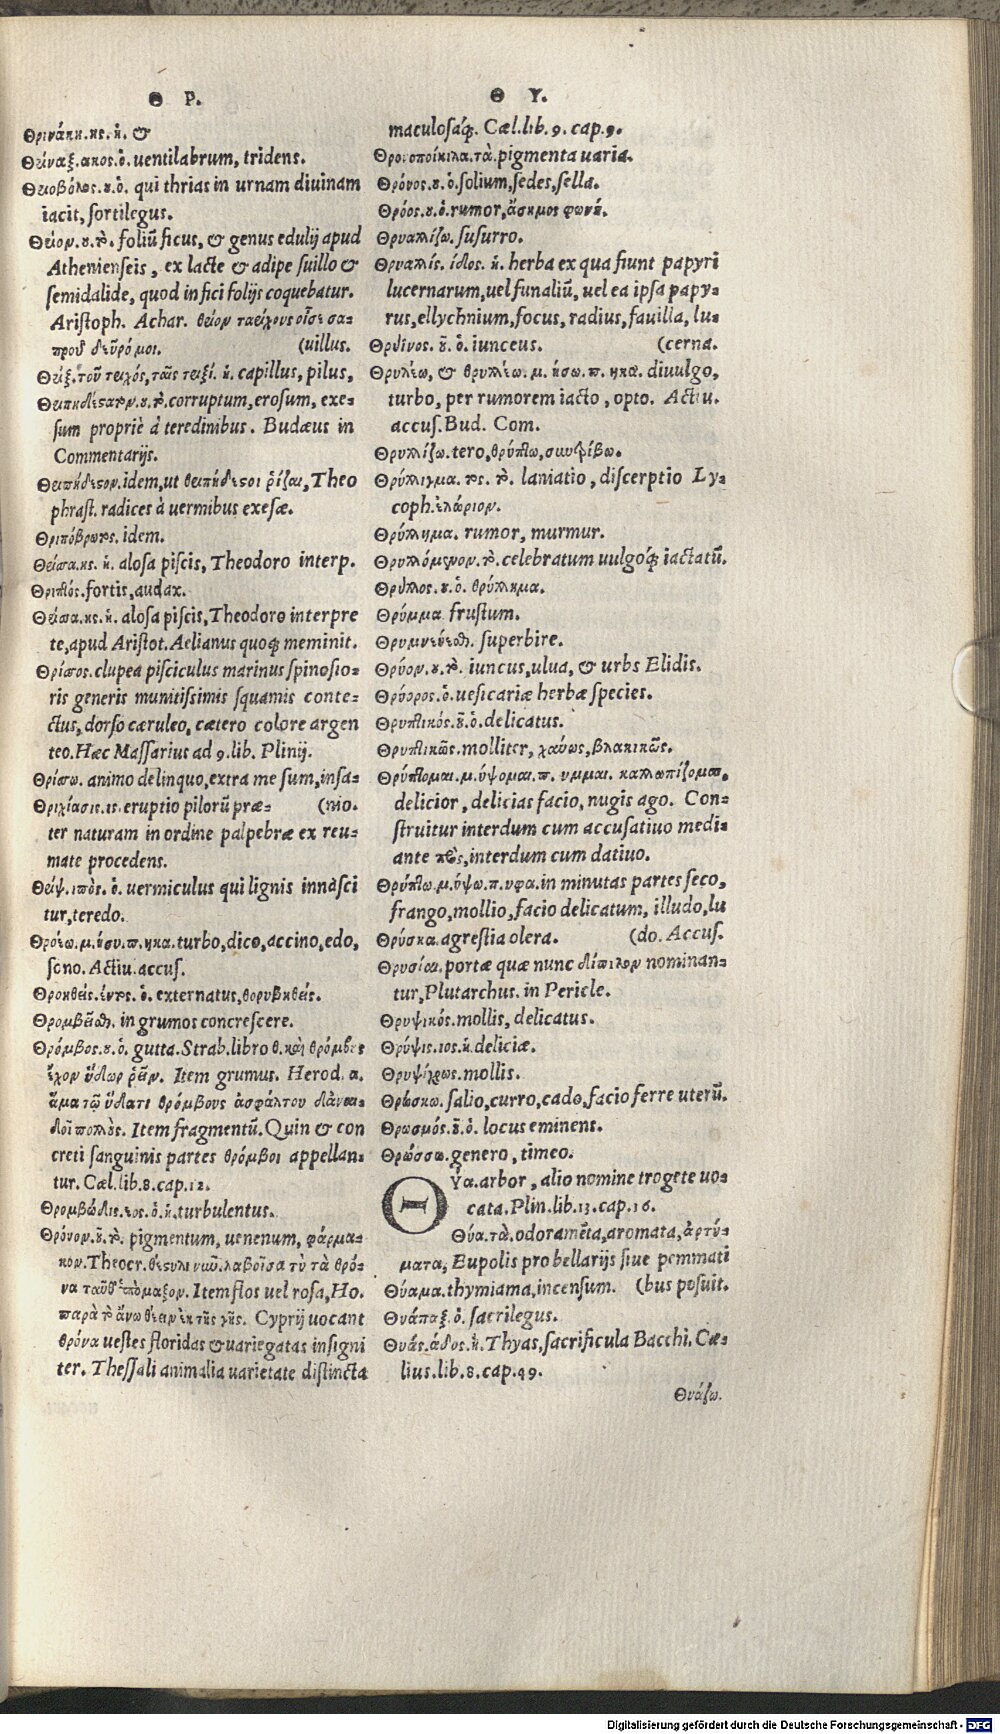 Θ Ρ.
Θρινάκη.κς.ἡ. &
Θρίναξ.ακος.ὁ. uentilabrum, tridens.
Θριοβόλος.ȣ.ὁ. qui thrias in urnam diuinam
iacit, sortilegus.
Θρίον.ȣ.τὸ. foliũ ficus, & genus edulij apud
Athenienseis, ex lacte & adipe suillo &
semidalide, quod in fici folijs coquebatur.
Aristoph. Achar. θρίον ταρίχους οἶσε σα-
προῦ δεῦρό μοι. (uillus.
Θρίξ. τοῦ τριχός, ταῖς ἡ. capillus, pilus,
Θριπηδέστατον.ȣ.τὸ. corruptum, erosum, exe-
sum propriè à teredinibus. Budæus in
Commentarijs.
Θριπήδεστον. idem, ut θριπήδεστοι ῥίζαι, Theo
phrast. radices à uermibus exesæ.
Θριπόβρωτος. idem.
Θρίσσα.κς.ἡ. alosa piscis, Theodoro interp.
fortis, audax.
Θρίσσα.κς.ἡ. alosa piscis, Theodoro interpre
te, apud Aristot. Aelianus quoq; meminit.
Θρίσσος. clupea pisciculus marinus spinosio-
ris generis munitissimis squamis conte-
ctus, dorso cæruleo, cætero colore argen
teo. Hæc Massarius ad 9. lib. Plinij.
Θρίσσω. animo delinquo, extra me sum, insa-
Θριχίασις.ις. eruptio pilorũ præ- (nio.
ter naturam in ordine palpebræ ex reu-
mate procedens.
Θρίψ.ιπὸς.ὁ. uermiculus qui lignis innasci
tur, teredo.
Θροέω.μ.ήσω.π.ηκα. turbo, dico, accino, edo,
sono. Actiu. accus.
Θροηθείς.έντος.ὁ. externatus, θορυβηθείς.
Θρομβεῖσθαι. in grumos concrescere.
Θρόμβος.ȣ.ὁ. gutta. Strab. libro θ. καὶ θρόμβȣς
ἔχον ὕδωρ ῥεῖν. Item grumus. Herod. α.
ἅμα τῷ ὕδατι θρόμβους ἀσφάλτου ἀναδι-
δοῖ πολλούς. Item fragmentũ. Quin & con
creti sanguinis partes θρόμβοι appellan-
tur. Cæl. lib. 8. cap. 12.
Θρομβώδης.εος.ὁ.ἡ. turbulentus.
Θρόνον.ȣ.τὸ. pigmentum, uenenum, φάρμα-
κον. Theocr. θέστυλι νῦν λαβοῖσα τὺ τὰ θρό-
να ταῦθ' ὑπόμαξον. Item flos uel rosa, Ho.
παρὰ τὸ ἄνω θέειν ἐκ τῆς γῆς. Cyprij uocant
θρόνα uestes floridas & uariegatas insigni
ter. Thessali animalia uarietate distincta
Θ Υ.
maculosáq;. Cæl. lib. 9. cap. 9.
Θρονοποίκιλα.τὰ. pigmenta uaria.
Θρόνος.ȣ.ὁ. solium, sedes, sella.
Θρόος.ȣ.ὁ. rumor, ἄσημος φωνή.
Θρυαλλίζω. susurro.
Θρυαλλίς.ίδος.ἡ. herba ex qua fiunt papyri
lucernarum, uel funaliũ, uel ea ipsa papy-
rus, ellychnium, focus, radius, fauilla, lu-
Θρύϊνος.ȣ.ὁ. iunceus. (cerna.
Θρυλέω, & θρυλλέω.μ.ήσω.π.ηκα. diuulgo,
turbo, per rumorem iacto, opto. Actiu.
accus. Bud. Com.
Θρυλλίζω. tero, θρύπτω, συντρίβω.
Θρύλλιγμα.τος.τὸ. laniatio, discerptio Ly-
coph.
Θρύλλημα. rumor, murmur.
Θρυλλόμενον.τὸ. celebratum uulgóq; iactatũ.
Θρύλλος.ȣ.ὁ. θρύλλημα.
Θρύμμα frustum.
superbire.
Θρύον.ȣ.τὸ. iuncus, ulua, & urbs Elidis.
Θρύορος.ὁ. uesicariæ herbæ species.
Θρυπτικός.ȣ.ὁ. delicatus.
Θρυπτικῶς. molliter, χαύνως, βλακικῶς.
Θρύπτομαι.μ.ύψομαι.π.υμμαι. καλλωπίζομαι,
delicior, delicias facio, nugis ago. Con-
struitur interdum cum accusatiuo medi-
ante πρὸς, interdum cum datiuo.
Θρύπτω.μ.ύψω.π.υφα. in minutas partes seco,
frango, mollio, facio delicatum, illudo, lu
Θρύσκα. agrestia olera. (do. Accus.
Θρυσίαι. portæ quæ nunc δίπυλον nominan-
tur, Plutarchus. in Pericle.
Θρυψικός. mollis, delicatus.
Θρύψις.ιος.ἡ. deliciæ.
Θρυψίχρως. mollis.
Θρώσκω. salio, curro, cado, facio ferre uterũ.
Θρωσμός.ȣ.ὁ. locus eminens.
Θρώσσω. genero, timeo.
ΘΥα. arbor, alio nomine trogete uo-
cata. Plin. lib. 13. cap. 16.
Θύα.τὰ. odoramẽta, aromata, ἀρτύ-
ματα, Eupolis pro bellarijs siue pemmati
Θύαμα. thymiama, incensum. (bus posuit.
Θυάπαξ.ὁ. sacrilegus.
Θυάς.άδος.ἡ. Thyas, sacrificula Bacchi. Cæ-
lius. lib. 8. cap. 49.
Θυάζω.
Digitalisierung gefördert durch die Deutsche Forschungsgemeinschaft - DFG